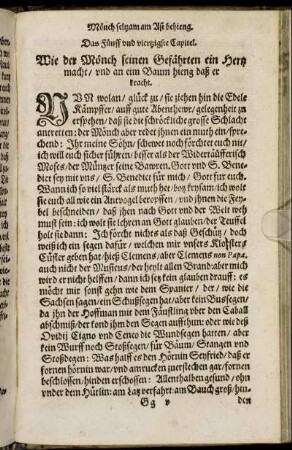 Mönch seltzam am Ast behieng.
Das Fünff und viertzigste Capitel.
Wie der Mönch seinen Gefährten ein Hertz
macht / vnd an eim Baum hieng daß er
kracht.
NVR wolan / glück zu / sie ziehen hin die Edele
Kämpffer / auff gute Abenthewr / gelegenheit zu
erspehen / daß sie die schröckliche grosse Schlacht
antretten: der Mönch aber redet jhnen ein muth ein / spre-
chend: Jhr meine Söhn / schewet noch förchtet euch nit /
ich will euch sicher führen / besser als der Widertäufferisch
Moses / der Müntzer seine Bawren. Gott vnd S. Bene
dict sey mit vns / S. Benedict für mich / Gott fur euch.
Wann ich so viel stärck als muth het / botz krysam / ich wolt
sie euch all wie ein Antvogel beropffen / vnd jhnen die Fey-
bel beschneiden / daß jhen nach Gott vnd der Welt weh
must sein: ich wolt sie lehren an Gott glauben / der Teuffel
holt sie dann: Jch förcht nichts als daß Geschütz / doch
weiß ich ein segen dafür / welchen mir vnsers Klosters
Cüster geben hat / hieß Clemens / aber Clemens non Papa,
auch nicht der Musicus / der heylt allen Brand: aber mich
wird er nicht helffen / dann ich hey kein glauben drauff: es
möcht mir sonst gehn wie dem Spanier / der / wie die
Sachsen sagen / ein Schußsegen hat / aber kein Bussegen /
da jhn der Hoffman mit dem Fäustling vber den Caball
abschmiß / der kond jhm den Segen aufftehim: oder wie deß
Ovidij Cigno vnd Ceneo die Wundsegen hatten / aber
kein Wurff noch Stoßsegen / für Bäum / Stangen vnd
Stoßdegen: Was halff es den Hörnin Seyfried / daß er
fornen hörnin war / vnd am rucken zuerstechen gar / fornen
beschlossen / hinden erschossen: Allenthalben gesund / ohn
vnder dem Hütlin: am hatz verfahrt am Bauch groß / hin-
Gg v den